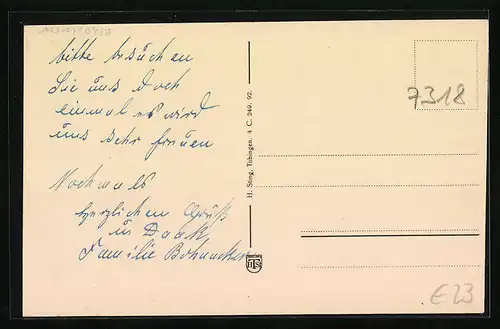 bitte besuchen
Sie uns doch
einmal es wird
uns sehr freuen
Nochmals
herzlichen Gruß
u. Dank
Familie
H. Sting, Tübingen. 4 C. 249. 92.
HST
7318
€23